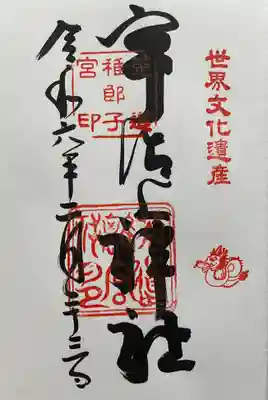 世界文化遺産
宇治上神社
稚郎子
宮印
令和六年二月二十三日